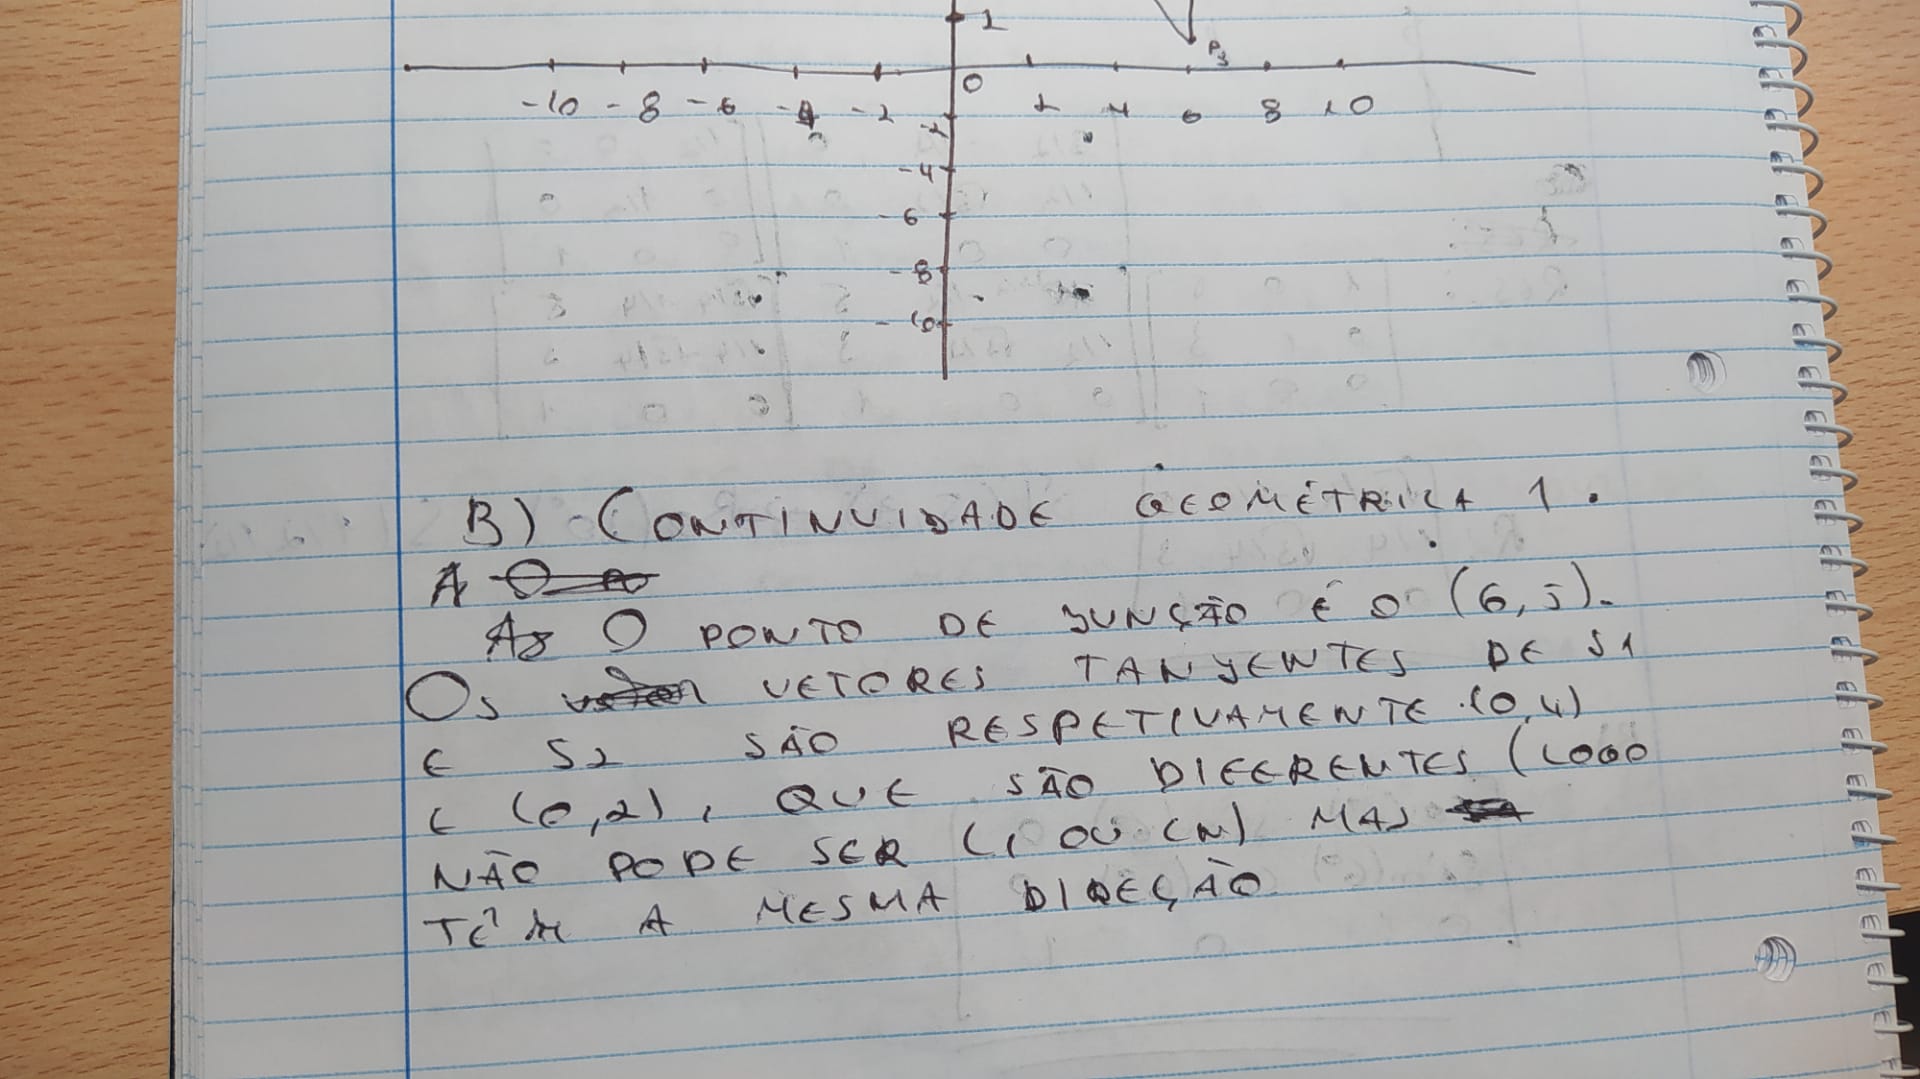 1
P3
0
-10 -8 -6 -4 -2 2 4 6 8 10
-2
-4
-6
-8
-10
B) CONTINUIDADE GEOMÉTRICA 1.
A
O PONTO DE JUNÇÃO É O (6,5).
OS VETORES TANJENTES DE S1
E S2 SÃO RESPETIVAMENTE (0,4)
E (0,2), QUE SÃO DIFERENTES (LOGO
NÃO PODE SER C1 OU CN) MAS
TÊM A MESMA DIREÇÃO